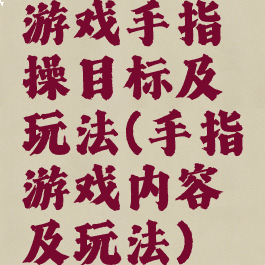 游戏手指
操目标及
玩法(手指
游戏内容
及玩法)